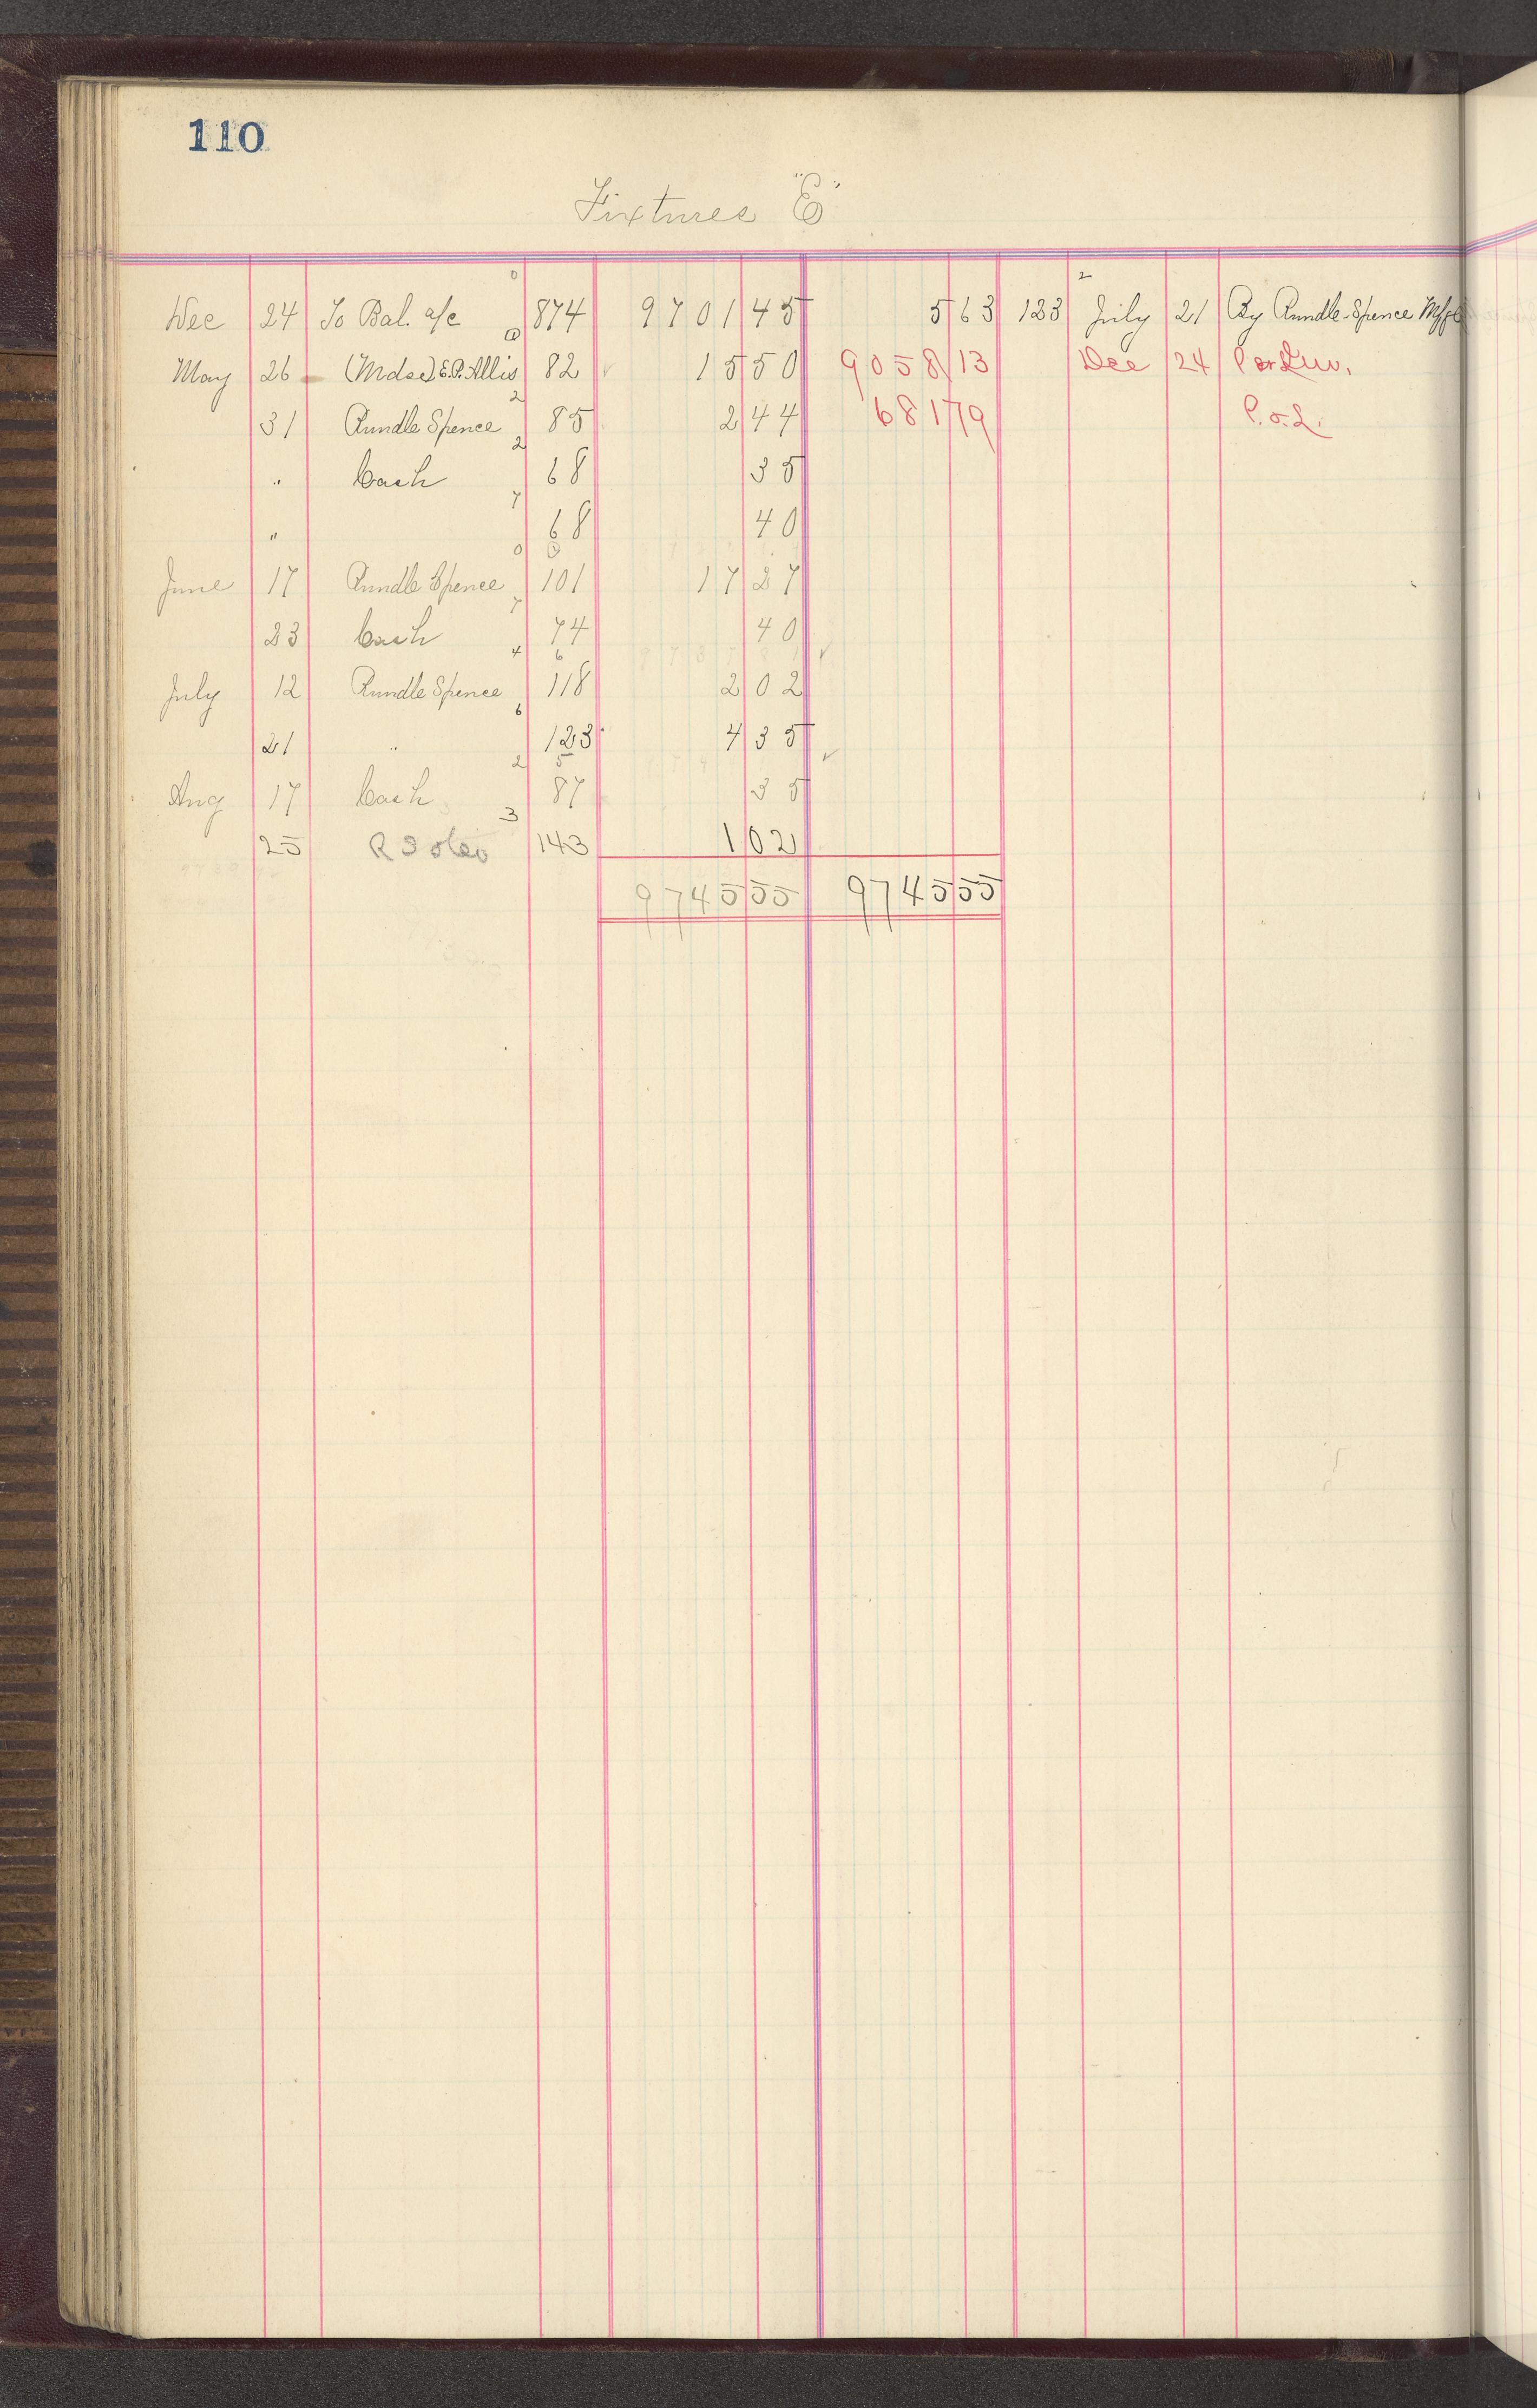 110
Fixtures "E"
Dec 24 To Bal. a/c 874 9701 45 5 63 123 July 21 By Rundle-Spence Mfg
May 26 (Mdse) E.P. Allis 82 15 50 9058 13 Dec 24 Inv.
31 Rundle Spence 85 2 44 681 79 P. & L.
" Cash 68 35
" 68 40
June 17 Rundle Spence 101 17 27
23 Cash 74 40
July 12 Rundle Spence 118 2 02
21 " 123 4 35
Aug 17 Cash 87 35
25 R S 143 1 02
9745 55 9745 55